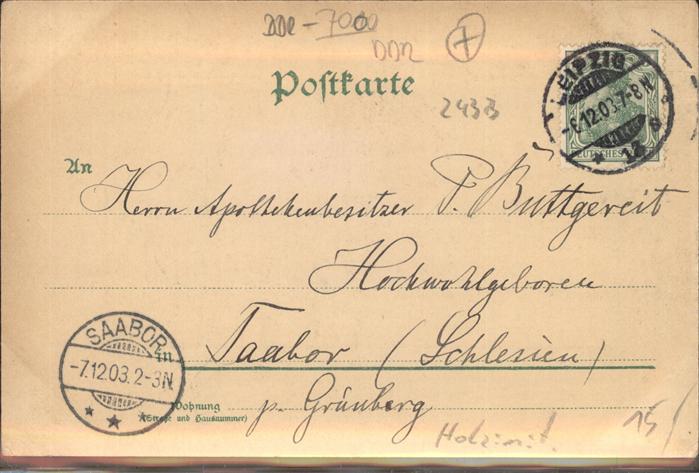 DDR - 7000
DDR +
Postkarte
2433
LEIPZIG
-6.12.03.7-8N.
* 13
DEUTSCHES
An
Herrn Apothekenbesitzer P. Buttgereit
Hochwohlgeboren
SAABOR
-7.12.03.2-3N.
* * *
in Saabor (Schlesien)
Wohnung
(Straße und Hausnummer)
p. Grünberg
Holzimit. 15